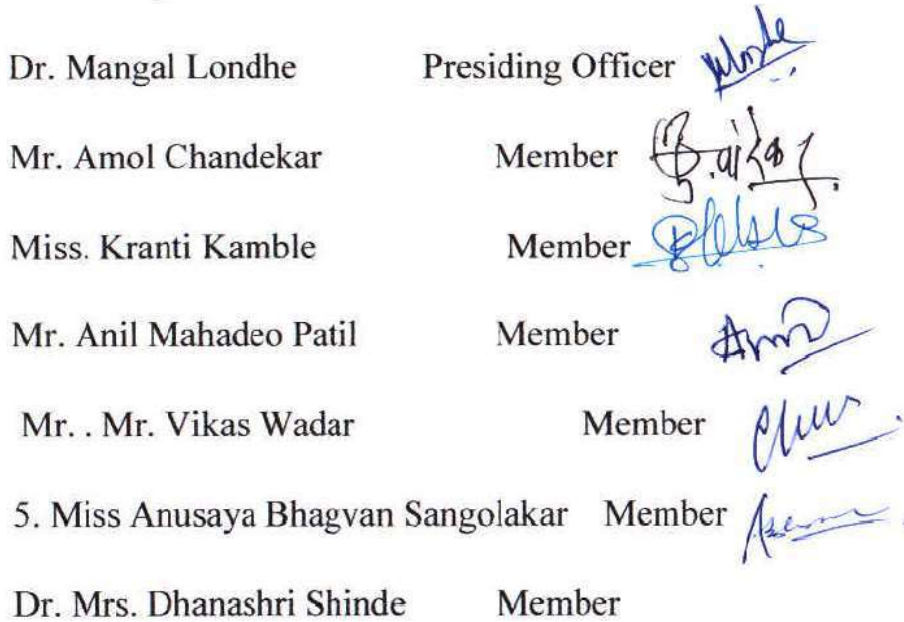 Dr. Mangal Londhe Presiding Officer
Mr. Amol Chandekar Member
Miss. Kranti Kamble Member
Mr. Anil Mahadeo Patil Member
Mr. . Mr. Vikas Wadar Member
5. Miss Anusaya Bhagvan Sangolakar Member
Dr. Mrs. Dhanashri Shinde Member